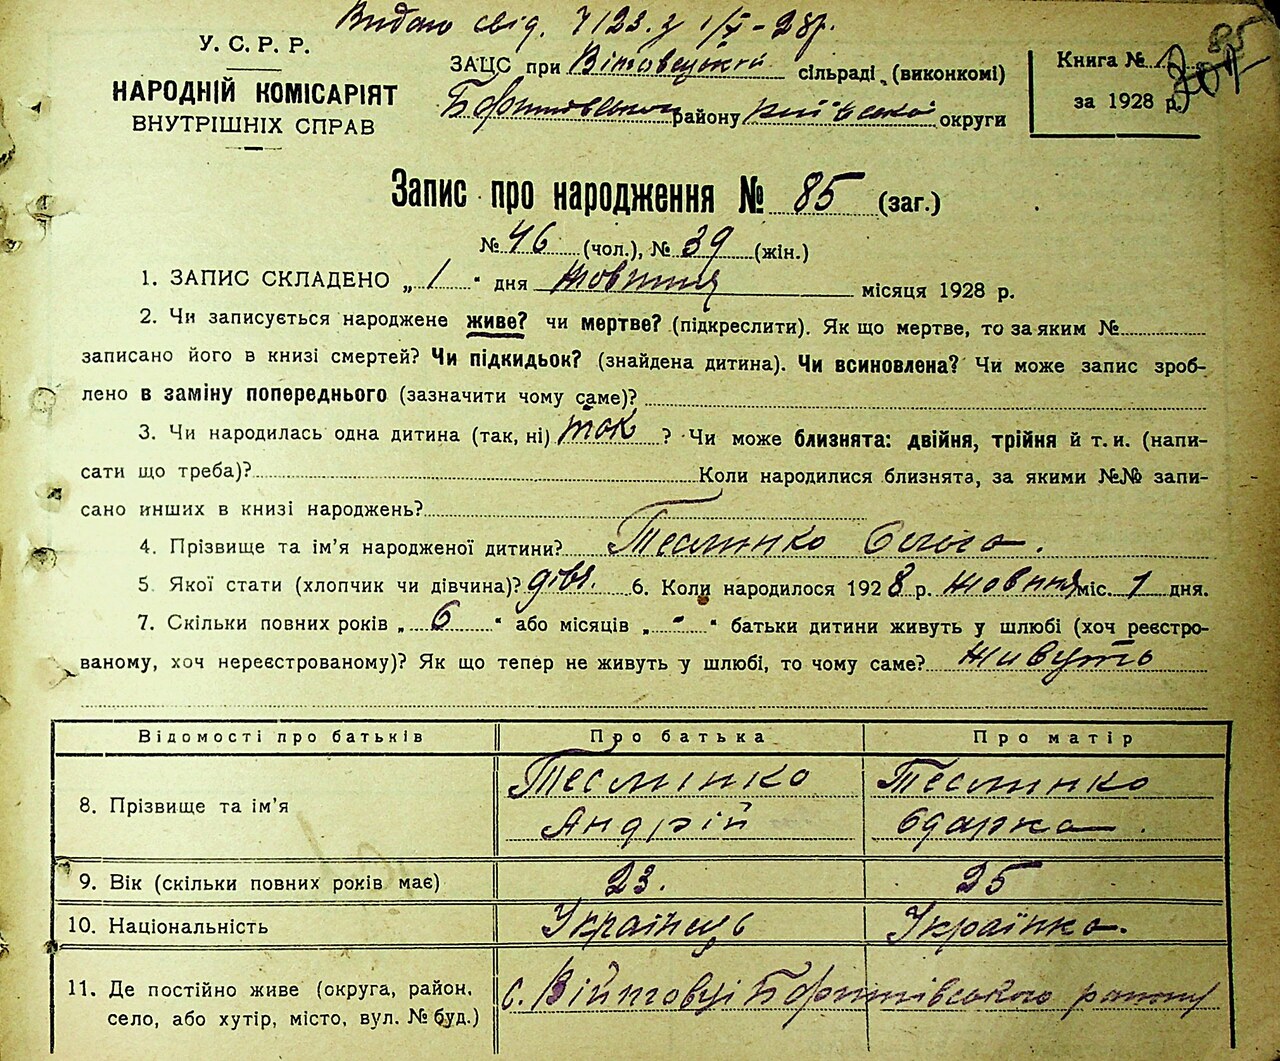 Видано свід. 7123 з 1/X-28р.
У. С. Р. Р.
НАРОДНІЙ КОМІСАРІЯТ
ВНУТРІШНІХ СПРАВ
ЗАЦС при сільраді, (виконкомі)
району Київської округи
Книга №
за 1928 р.
85
Запис про народження № 85 (заг.)
№ 46 (чол.), № 39 (жін.)
1. ЗАПИС СКЛАДЕНО „ 1 " дня Жовтня місяця 1928 р.
2. Чи записується народжене живе? чи мертве? (підкреслити). Як що мертве, то за яким №
записано його в книзі смертей? Чи підкидьок? (знайдена дитина). Чи всиновлена? Чи може запис зроб-
лено в заміну попереднього (зазначити чому саме)?
3. Чи народилась одна дитина (так, ні) так ? Чи може близнята: двійня, трійня й т. и. (напи-
сати що треба)? Коли народилися близнята, за якими №№ запи-
сано инших в книзі народжень?
4. Прізвище та ім'я народженої дитини? Теслинко Ольга.
5. Якої стати (хлопчик чи дівчина)? дівч. 6. Коли народилося 1928 р. Жовтня міс. 1 дня.
7. Скільки повних років „ 6 " або місяців „ - " батьки дитини живуть у шлюбі (хоч реєстро-
ваному, хоч нереєстрованому)? Як що тепер не живуть у шлюбі, то чому саме? Живуть
Відомості про батьків Про батька Про матір
8. Прізвище та ім'я Теслинко Андрій Теслинко Одарка.
9. Вік (скільки повних років має) 23. 25
10. Національність Українець Українка.
11. Де постійно живе (округа, район, село, або хутір, місто, вул. № буд.) с. Війтовці Баришівського району